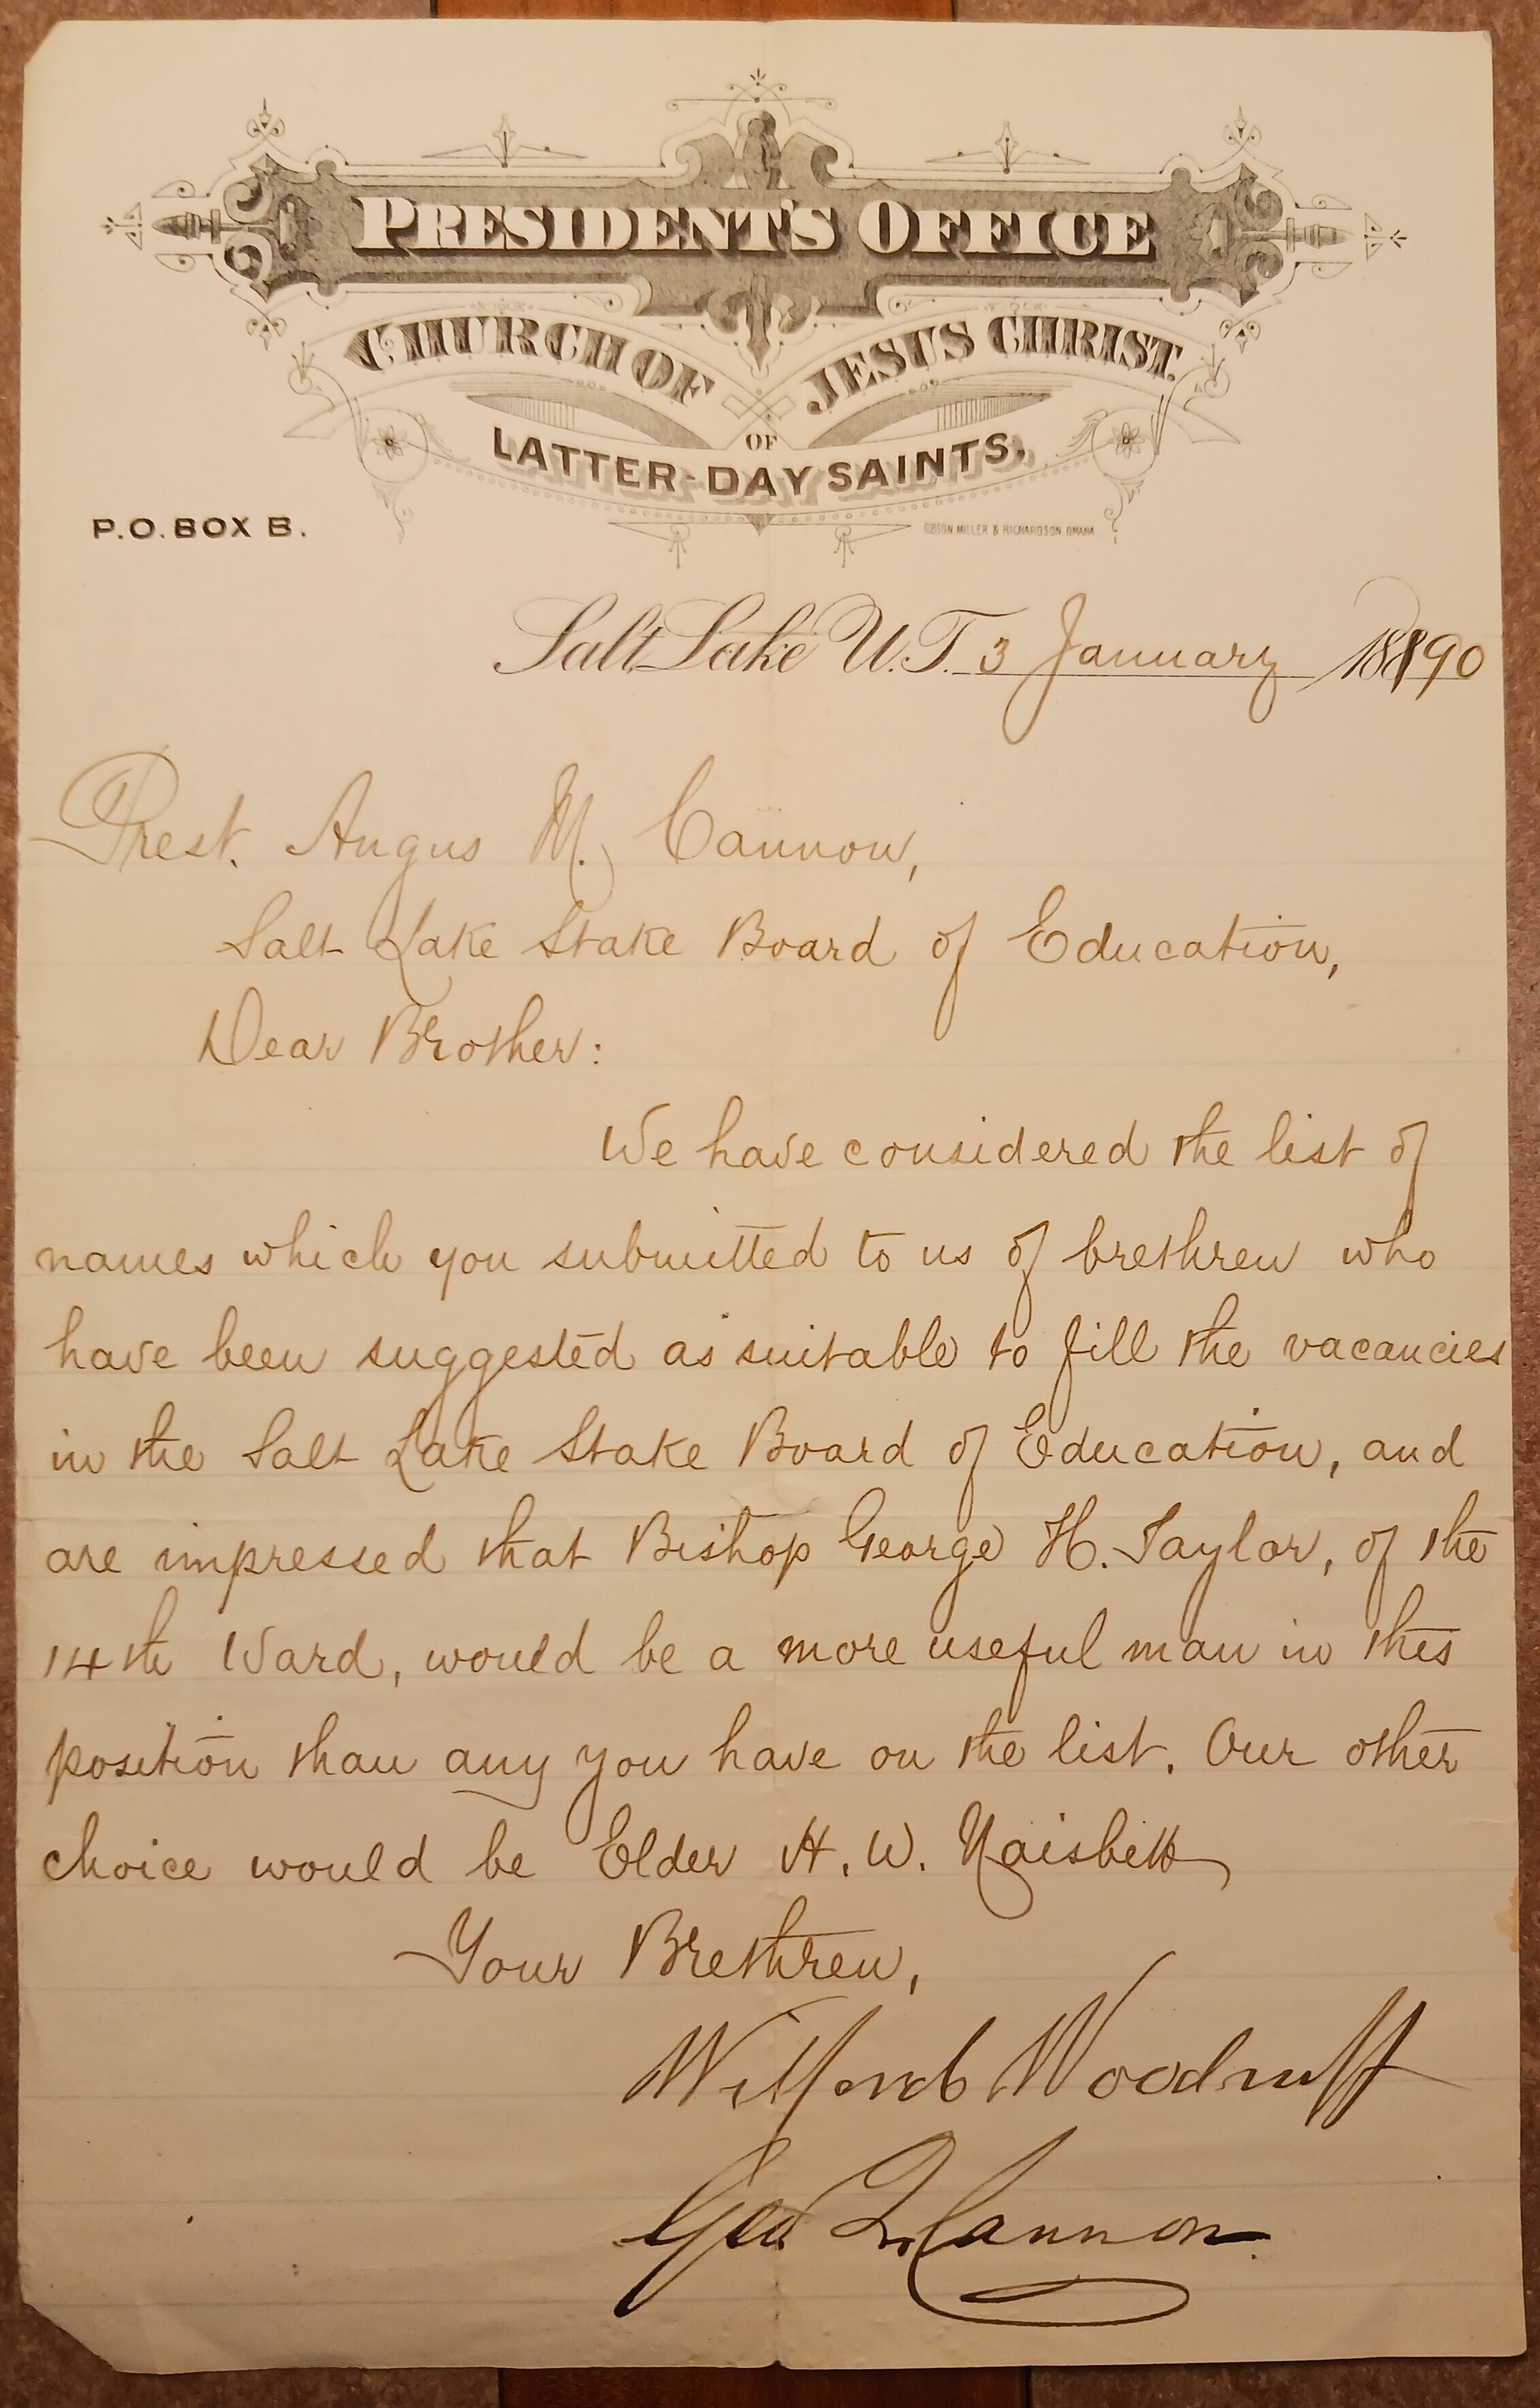 PRESIDENT'S OFFICE
CHURCH OF JESUS CHRIST.
OF
LATTER-DAY SAINTS.
P.O. BOX B.
GIBSON MILLER & RICHARDSON OMAHA
Salt Lake U.T. 3 January 1890
Prest. Angus M. Cannon,
Salt Lake Stake Board of Education,
Dear Brother:
We have considered the list of
names which you submitted to us of brethren who
have been suggested as suitable to fill the vacancies
in the Salt Lake Stake Board of Education, and
are impressed that Bishop George H. Taylor, of the
14th Ward, would be a more useful man in this
position than any you have on the list. Our other
choice would be Elder H. W. Naisbitt
Your Brethren,
Wilford Woodruff
Geo Q. Cannon